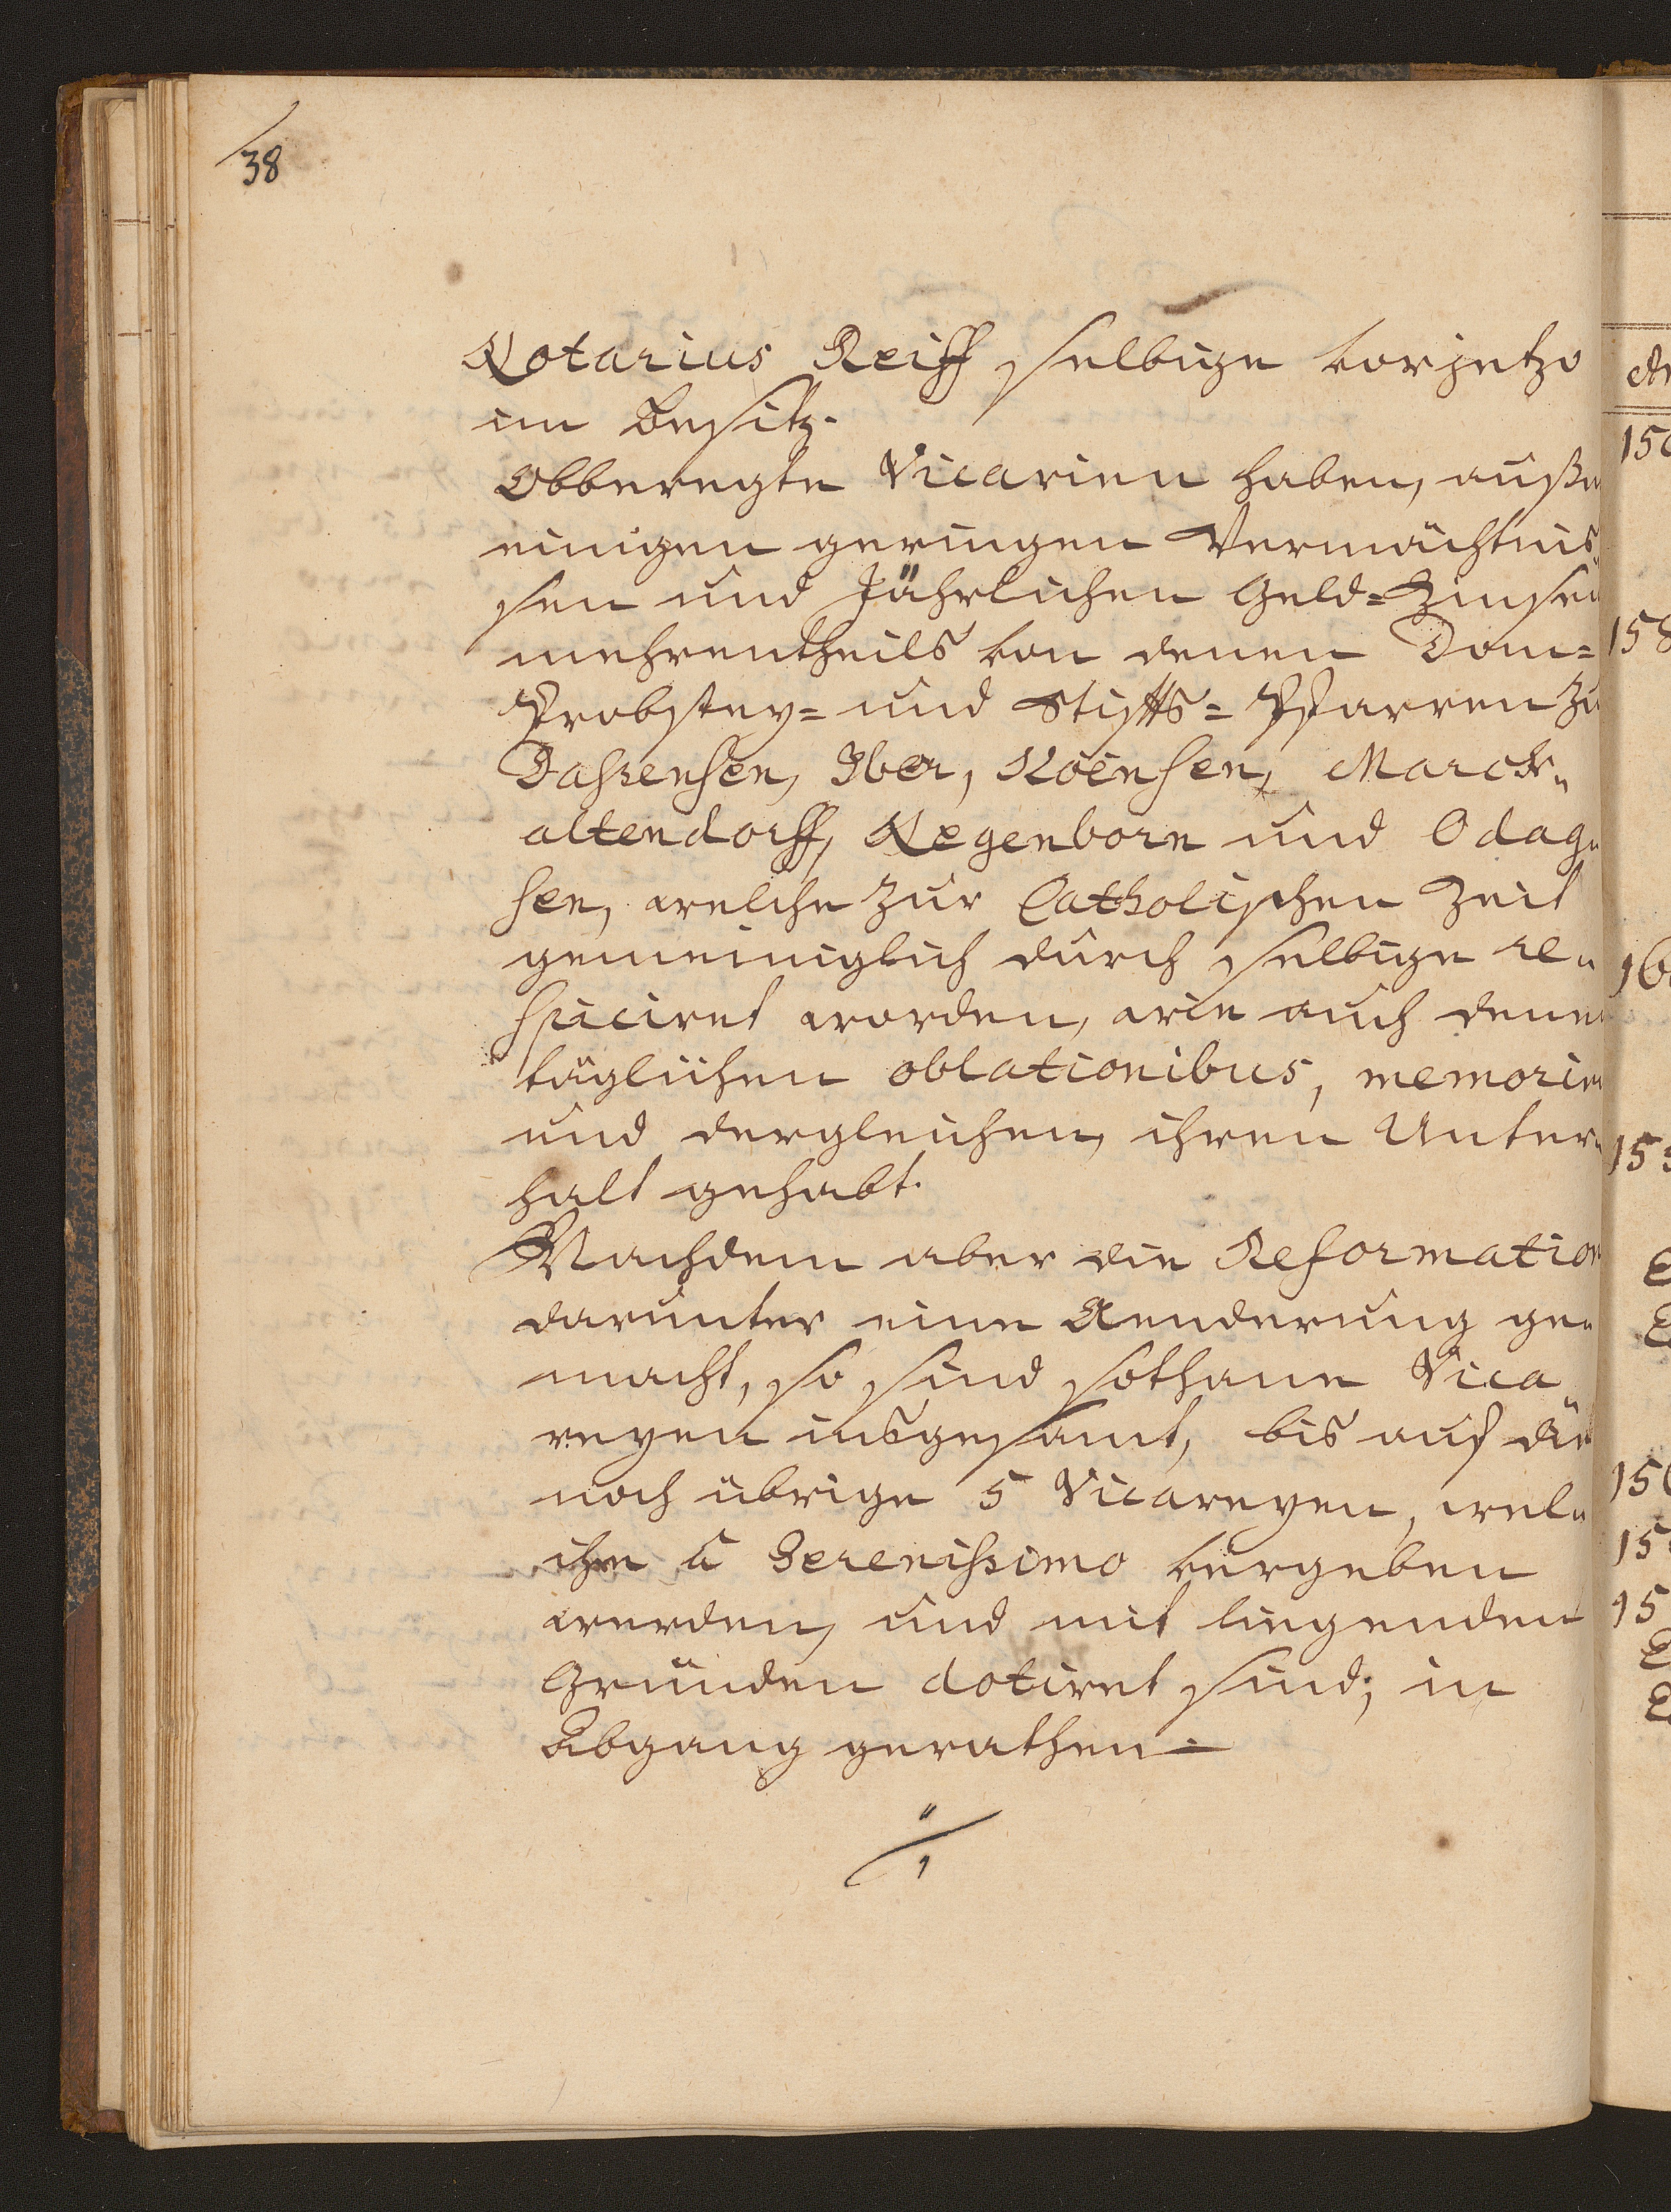 38
Notarius Reiff selbige vorjetzo
im Besitz.
Obberegte Vicarien haben, außer
einigen geringen Vermächtnis„
sen und Jährlichen Geld=Zinsen
mehrentheils von denen Dom=
Probstey= und Stiffts= Pfarren zu
Dassensen, Iber, Roensen, Marck„
altendorff, Negenborn und Odag„
sen, welche zur Catholischen Zeit
gemeiniglich durch selbige re„
spiciret worden, wie auch denen
täglichen oblationibus, memorien
und dergleichen, ihren Unter„
halt gehabt.
Nachdem aber die Reformation
darunter eine Aenderung ge„
macht, so sind sothane Vica„
reyen insgesamt, bis auf die
noch übrige 5 Vicareyen, wel„
che a Serenissimo vergeben
werden, und mit liegenden
Gründen dotiret sind; in
Abgang gerathen.